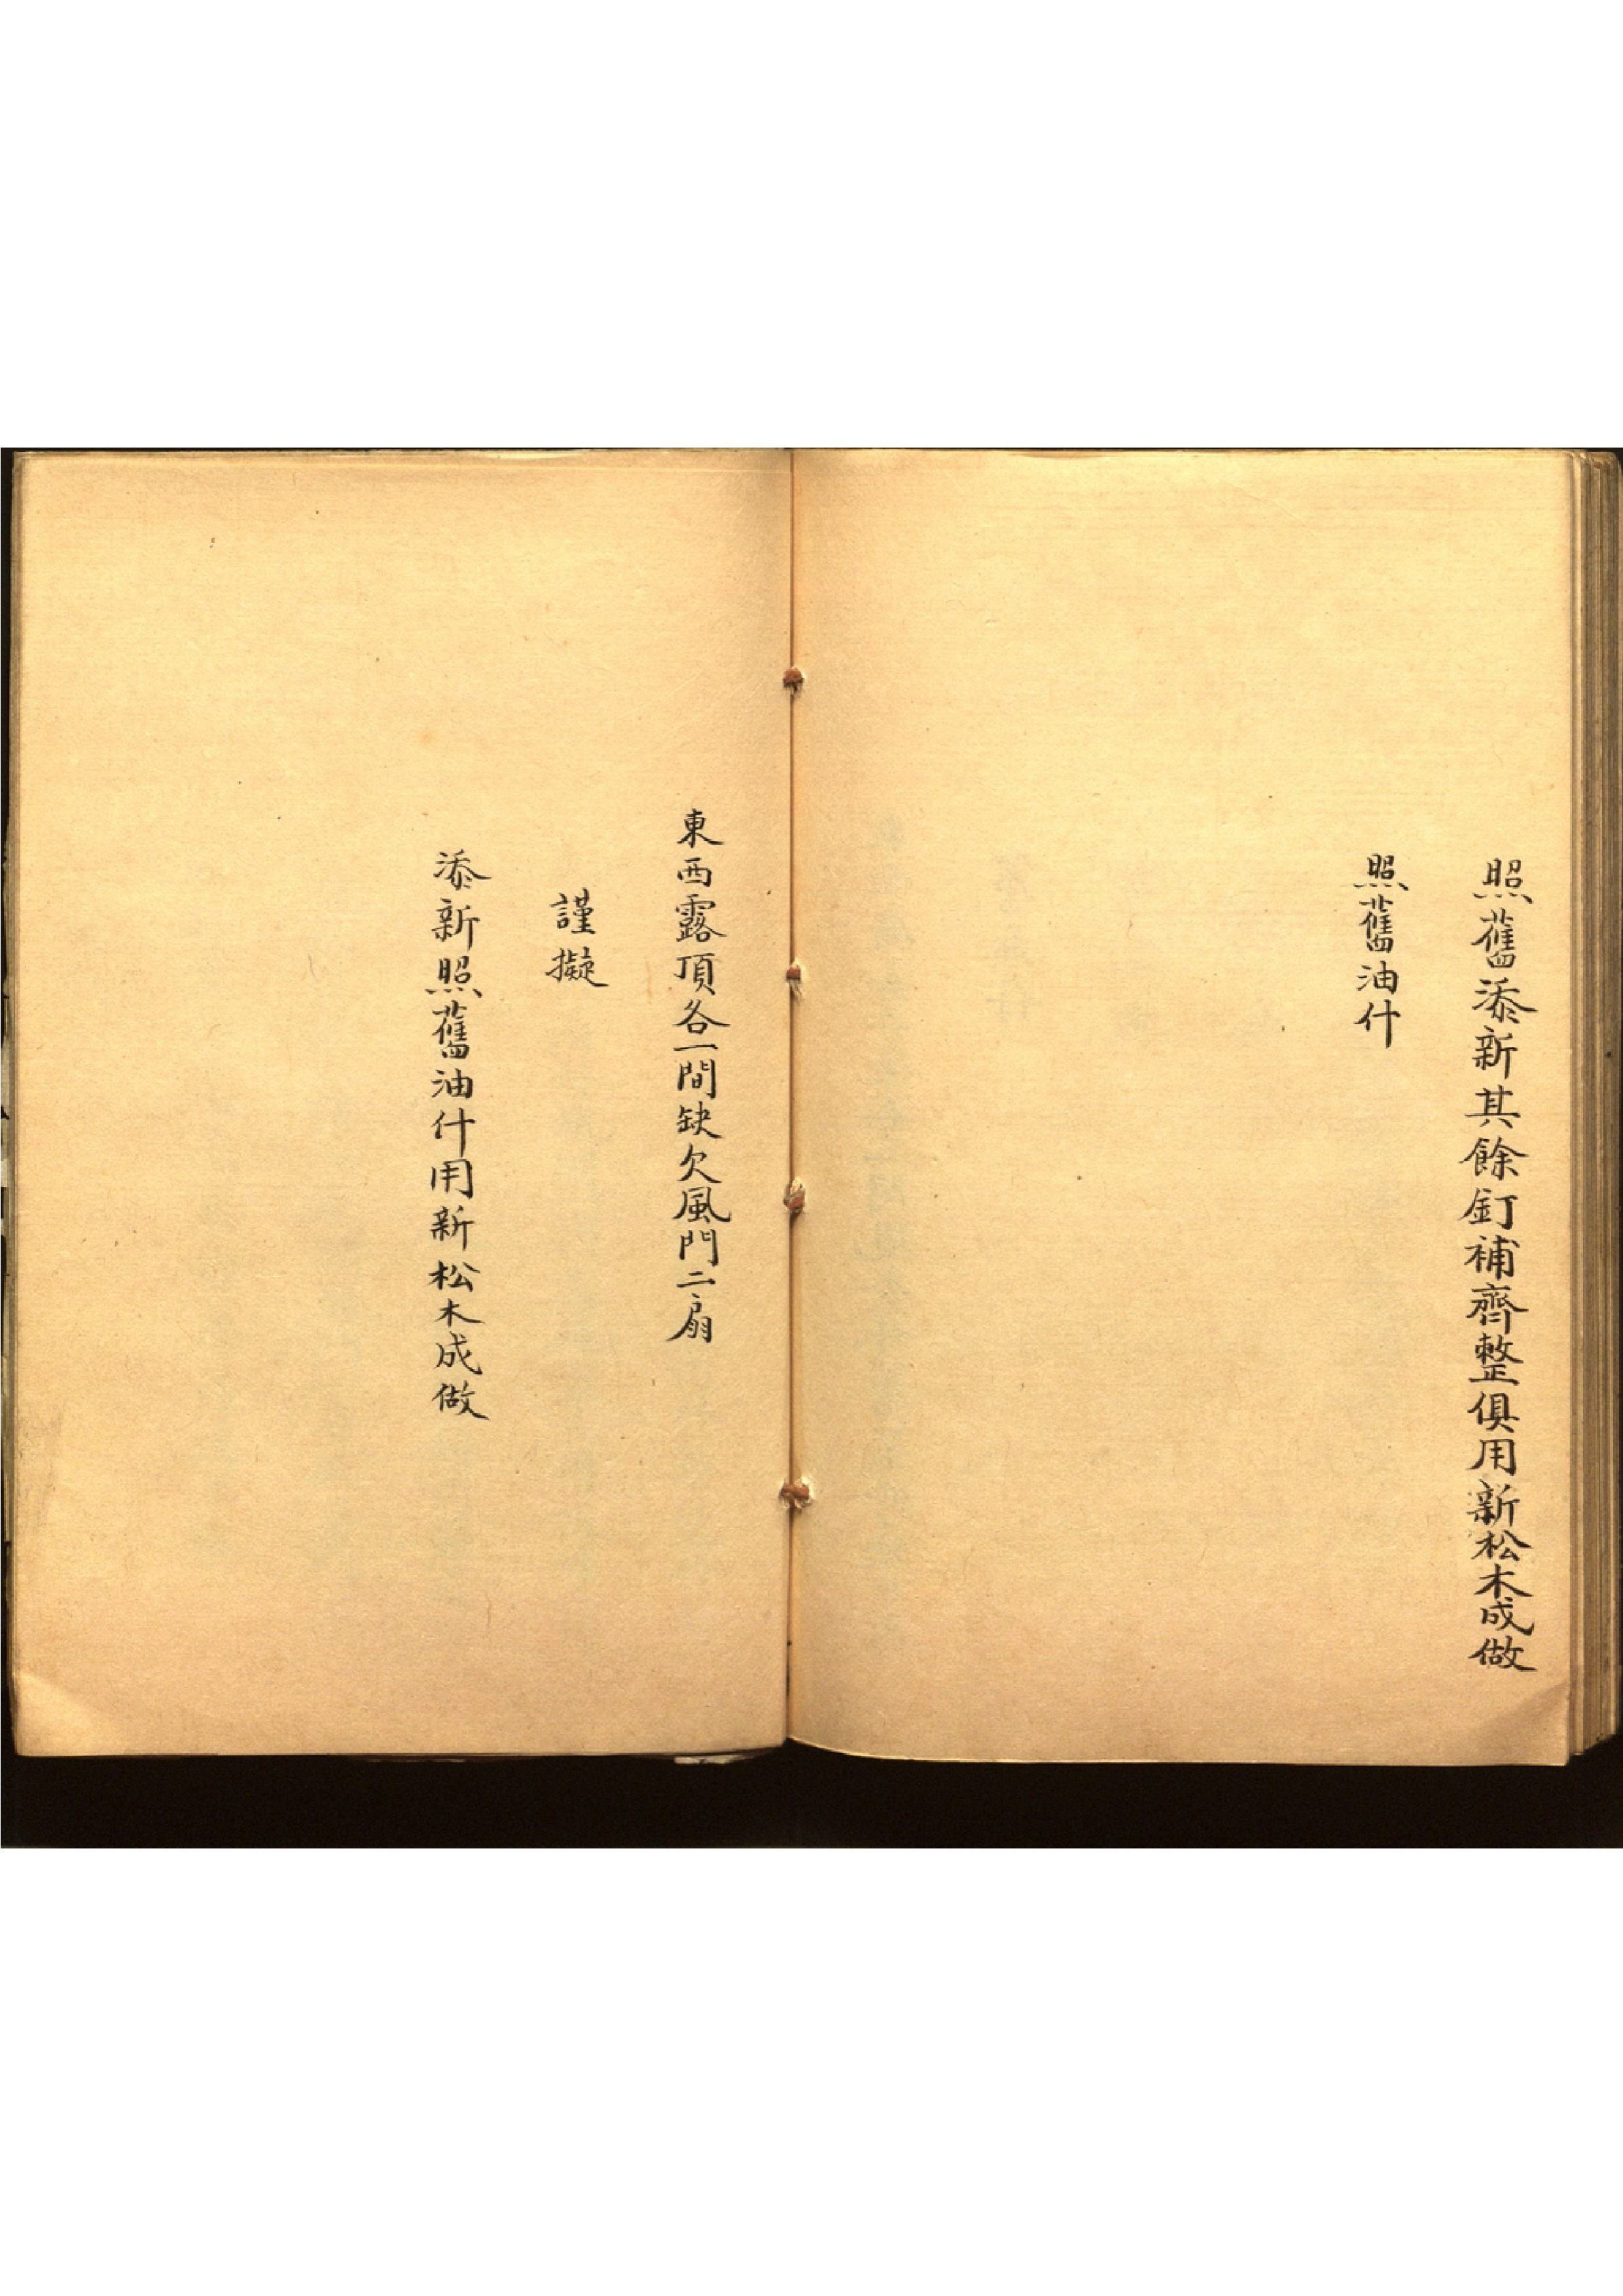 照舊添新其餘釘補齊整俱用新松木成做
照舊油什
東西露頂各一間缺欠風門二扇
謹擬
添新照舊油什用新松木成做